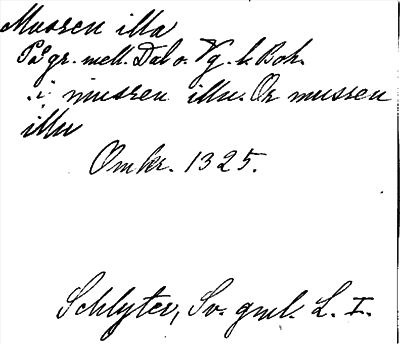 Mussen illa
På gr. mell. Dal o. Vg. h. Boh.
.i. mussen illu. Or mussen
illu
Omkr. 1325.
Schlyter, Sv. gml. L. I.